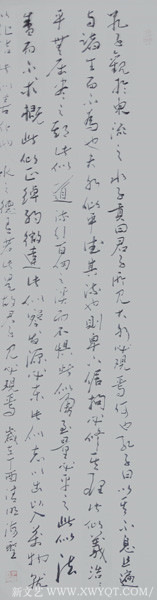 孔子觀於東流之水子貢問曰君子所見大水必觀焉何也孔子曰以其不息且遍
与諸生而不為也夫水似乎德其流也則卑下倨拘必修其理此似義浩
乎無屈盡之期此似道流行赴百仞之溪而不懼此似勇至量必平之此似法
盛而不求概此似正綽約微達此似察發源必東此似志以出以入萬物就
以化潔此似善化也水之德有若此是故君子見必觀焉 歲在丁酉清明
新文艺（www.XWYQT.COM）